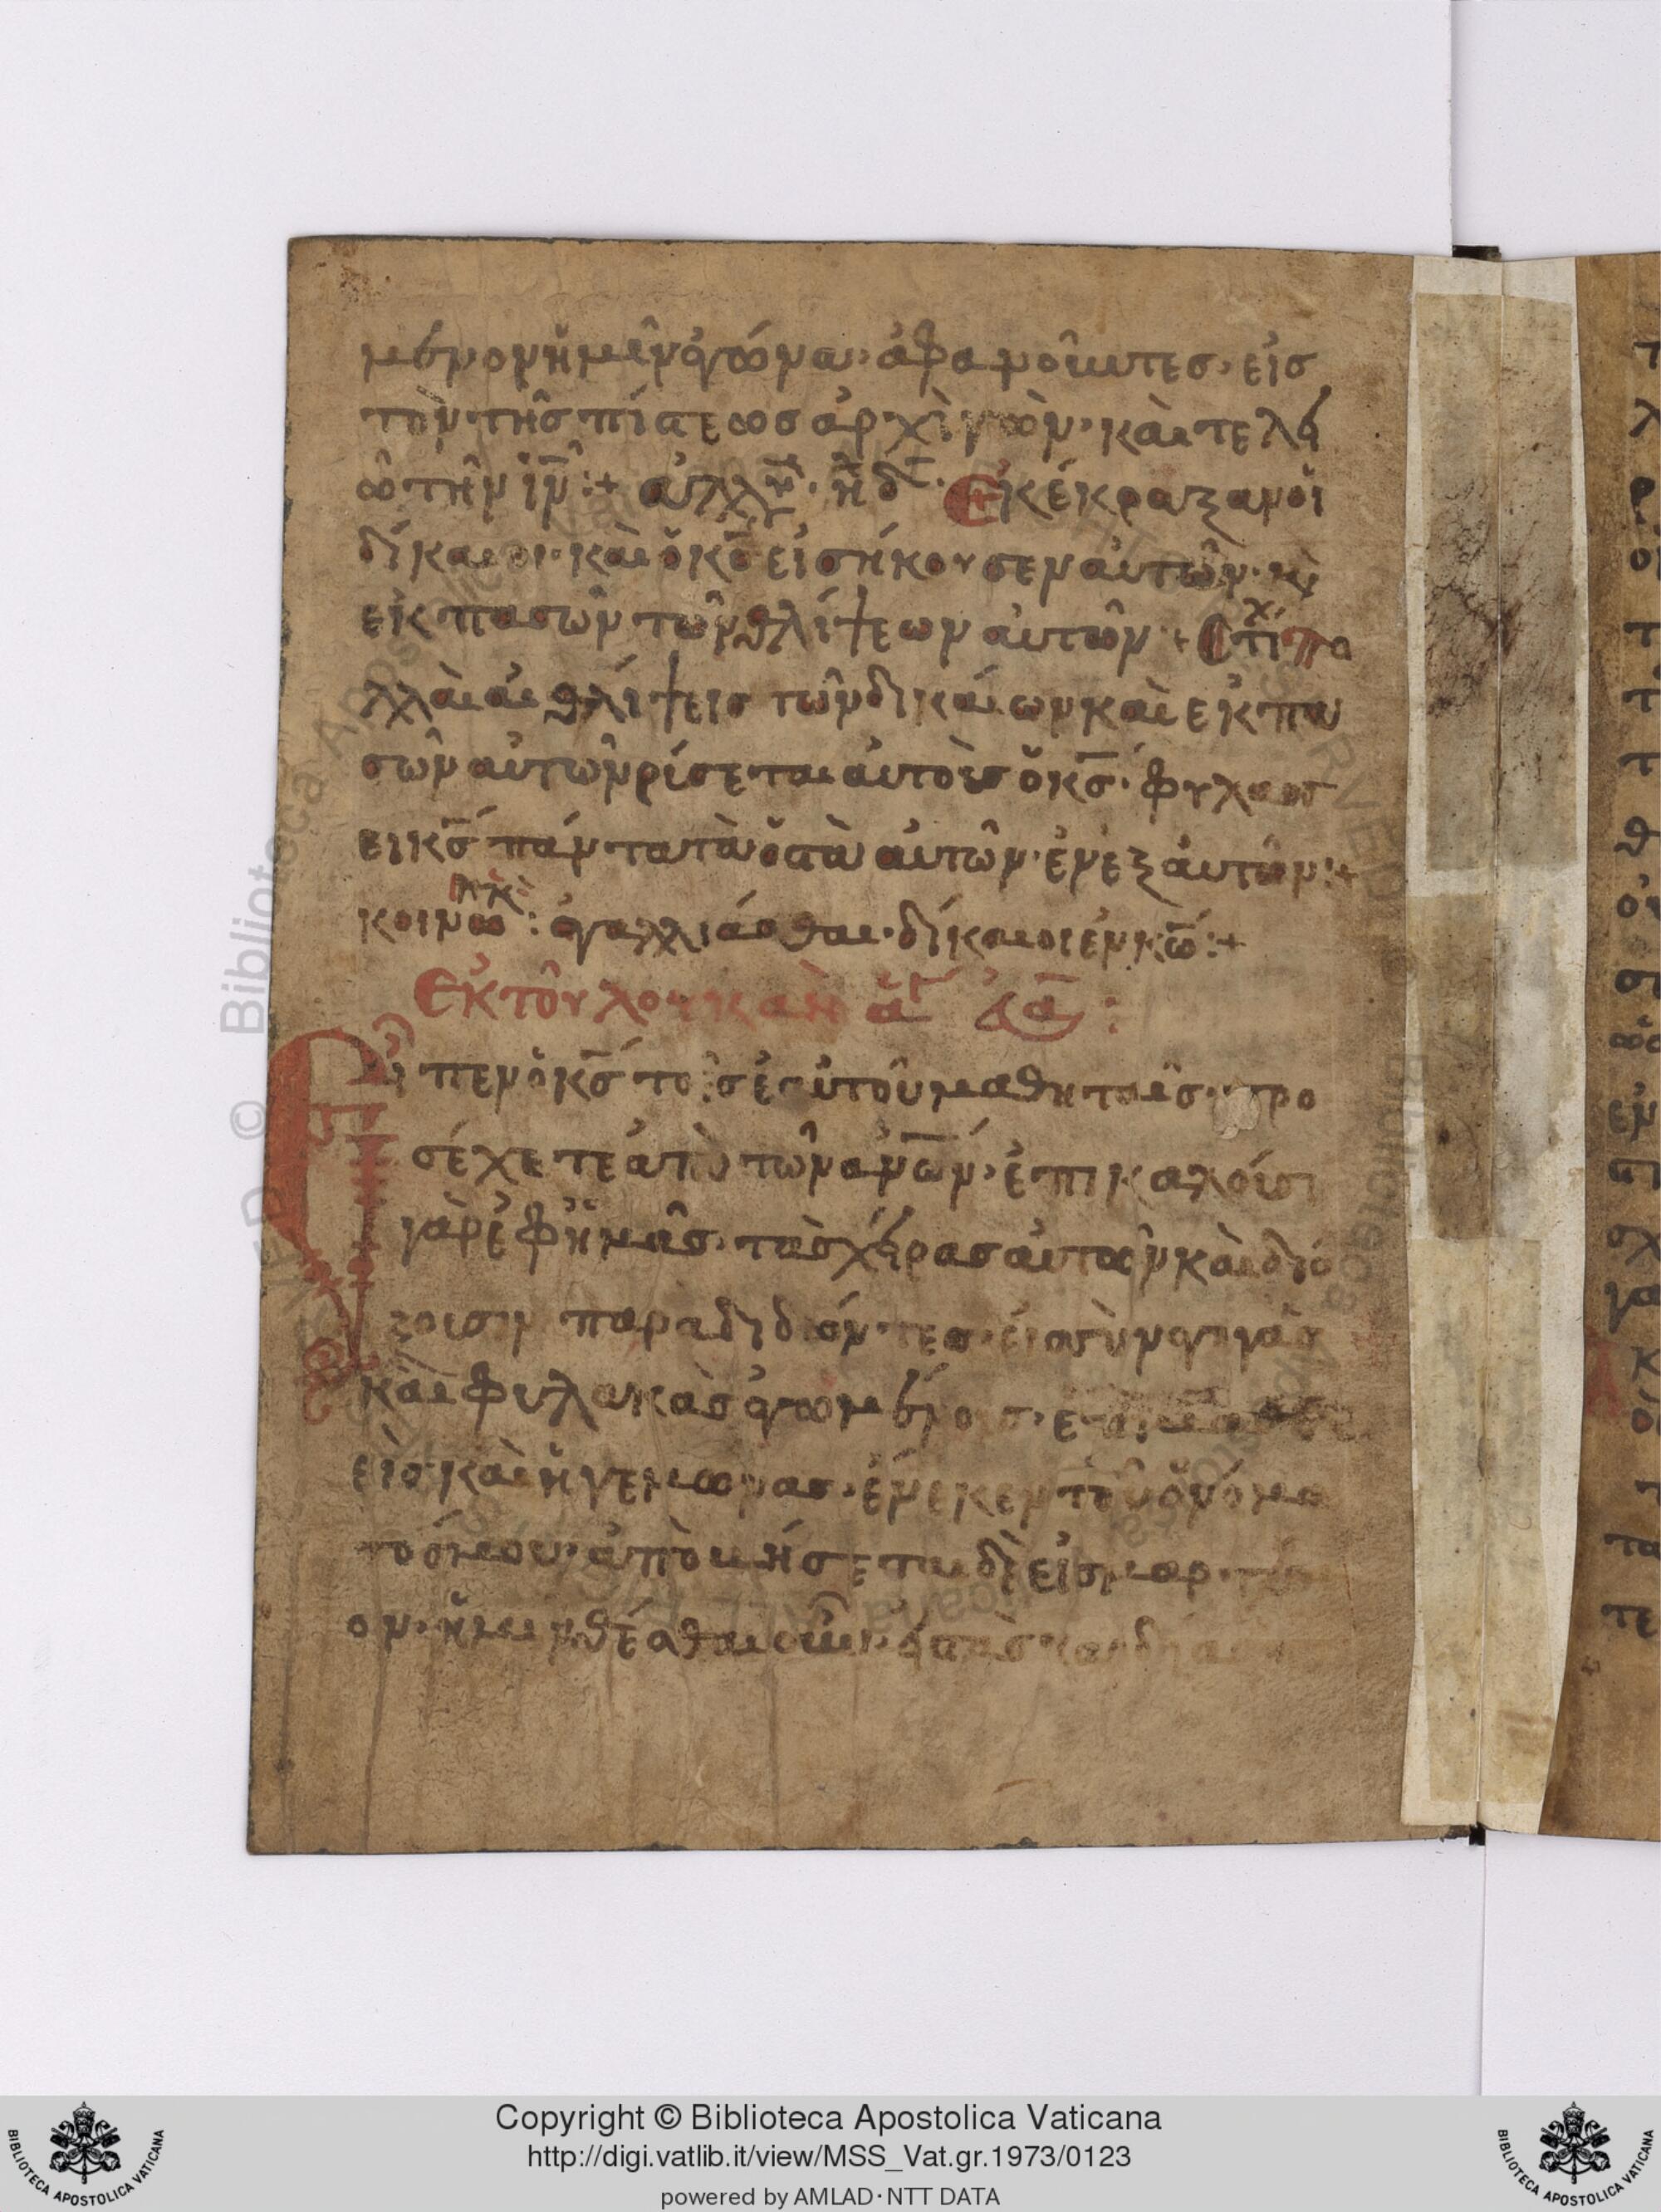 μενον ἡμῖν ἀγώνα· ἀφαρῶντες· εἰς
τὸν τῆς πίστεωσ ἀρχιγὼν· καὶ τελει
ῶτὴν ἰν̅ :+ ἀλλη · ἦ δ · Ἐκέκραξαν οἱ
δίκαιοι· καὶ ὁ κς̅ εἰσήκουσεν αὐτῶν· κ̀
εἰκ πασῶν τῶν θλίψεων αὐτῶν + Στίχ πο
λλαὶ αἱ θλίψεις τῶν δικαίων καὶ ἐκ πα
σῶν αὐτῶν ρίσεται αὐτοὺσ ὁ κς̅· φυχασσ
ει κς̅ πάντα τὰ ὀστὰ αὐτῶν· ἐν ἐξ αὐτῶν :+
κοινω : ἀγαλλιάσθαι· δίκαιοι ἐν κω̅ :+
Ἐκ τοῦ λουκαν
Εἶπεν ὁ κς̅ τοῖσ ἐαυτοῦ μαθηταῖσ· προ
σέχετε ἀπὸ τῶν ανω̅ν· ἐπικαλοῦσι
γὰρ ἐφ ἡμᾶς· τὰσ χείρασ αὐτῶν καὶ διό
ξοισιν παραδιδόντεσ· εἰσ συναγωγὰσ
καὶ φυλακὰσ ἀγωμένοισ·
εἰσ καὶ ἡγεμωνασ· ἕνεκεν τοῦ ὀνόμα
τόσ μου· ἀποβήσεται δὲ εἰσ μαρτύ
ον· ἡμιν θέσθαι οὖν· εἰσ τὰσ καρδίασ
Copyright © Biblioteca Apostolica Vaticana
http://digi.vatlib.it/view/MSS_Vat.gr.1973/0123
powered by AMLAD·NTT DATA
BIBLIOTECA APOSTOLICA VATICANA
BIBLIOTECA APOSTOLICA VATICANA